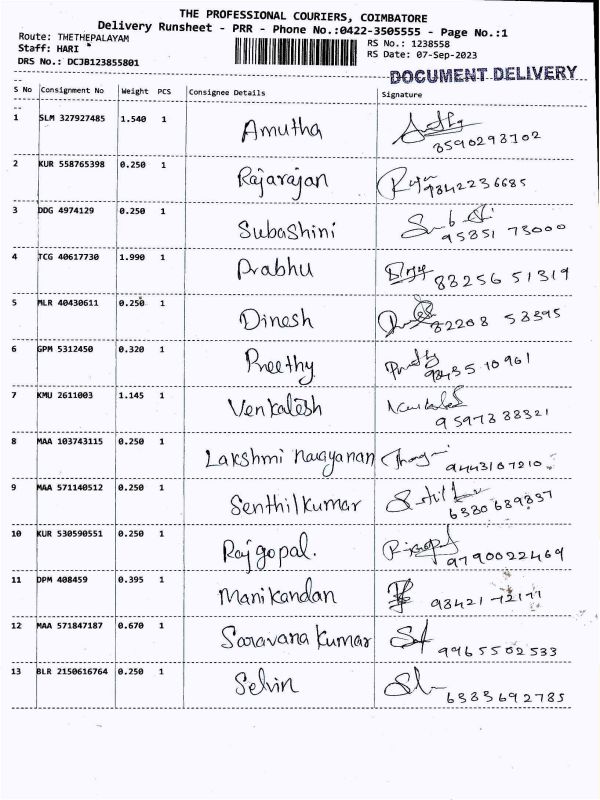 THE PROFESSIONAL COURIERS, COIMBATORE
Delivery Runsheet - PRR - Phone No.:0422-3505555 - Page No.:1
Route: THETHEPALAYAM
RS No.: 1238558
Staff: HARI
RS Date: 07-Sep-2023
DRS No.: DCJB123855801
DOCUMENT DELIVERY
S No Consignment No Weight PCS Consignee Details Signature
1 SLM 327927485 1.540 1 Amutha
8590293702
2 KUR 558765398 0.250 1 Rajarajan
9842236685
3 DDG 4974129 0.250 1 Subashini
95851 73000
4 TCG 40617730 1.990 1 Prabhu
83256 51319
5 MLR 40430611 0.250 1 Dinesh
82208 53395
6 GPM 5312450 0.320 1 Preethy
98435 10961
7 KMU 2611003 1.145 1 Venkatesh
95973 38321
8 MAA 103743115 0.250 1 Lakshmi Narayanan
9443107210
9 MAA 571140512 0.250 1 Senthil Kumar
6380689837
10 KUR 530590551 0.250 1 Rajgopal.
9790022469
11 DPM 408459 0.395 1 Manikandan
93421 72177
12 MAA 571847187 0.670 1 Saravana Kumar
9965502533
13 BLR 2150616764 0.250 1 Selvin
6383692785